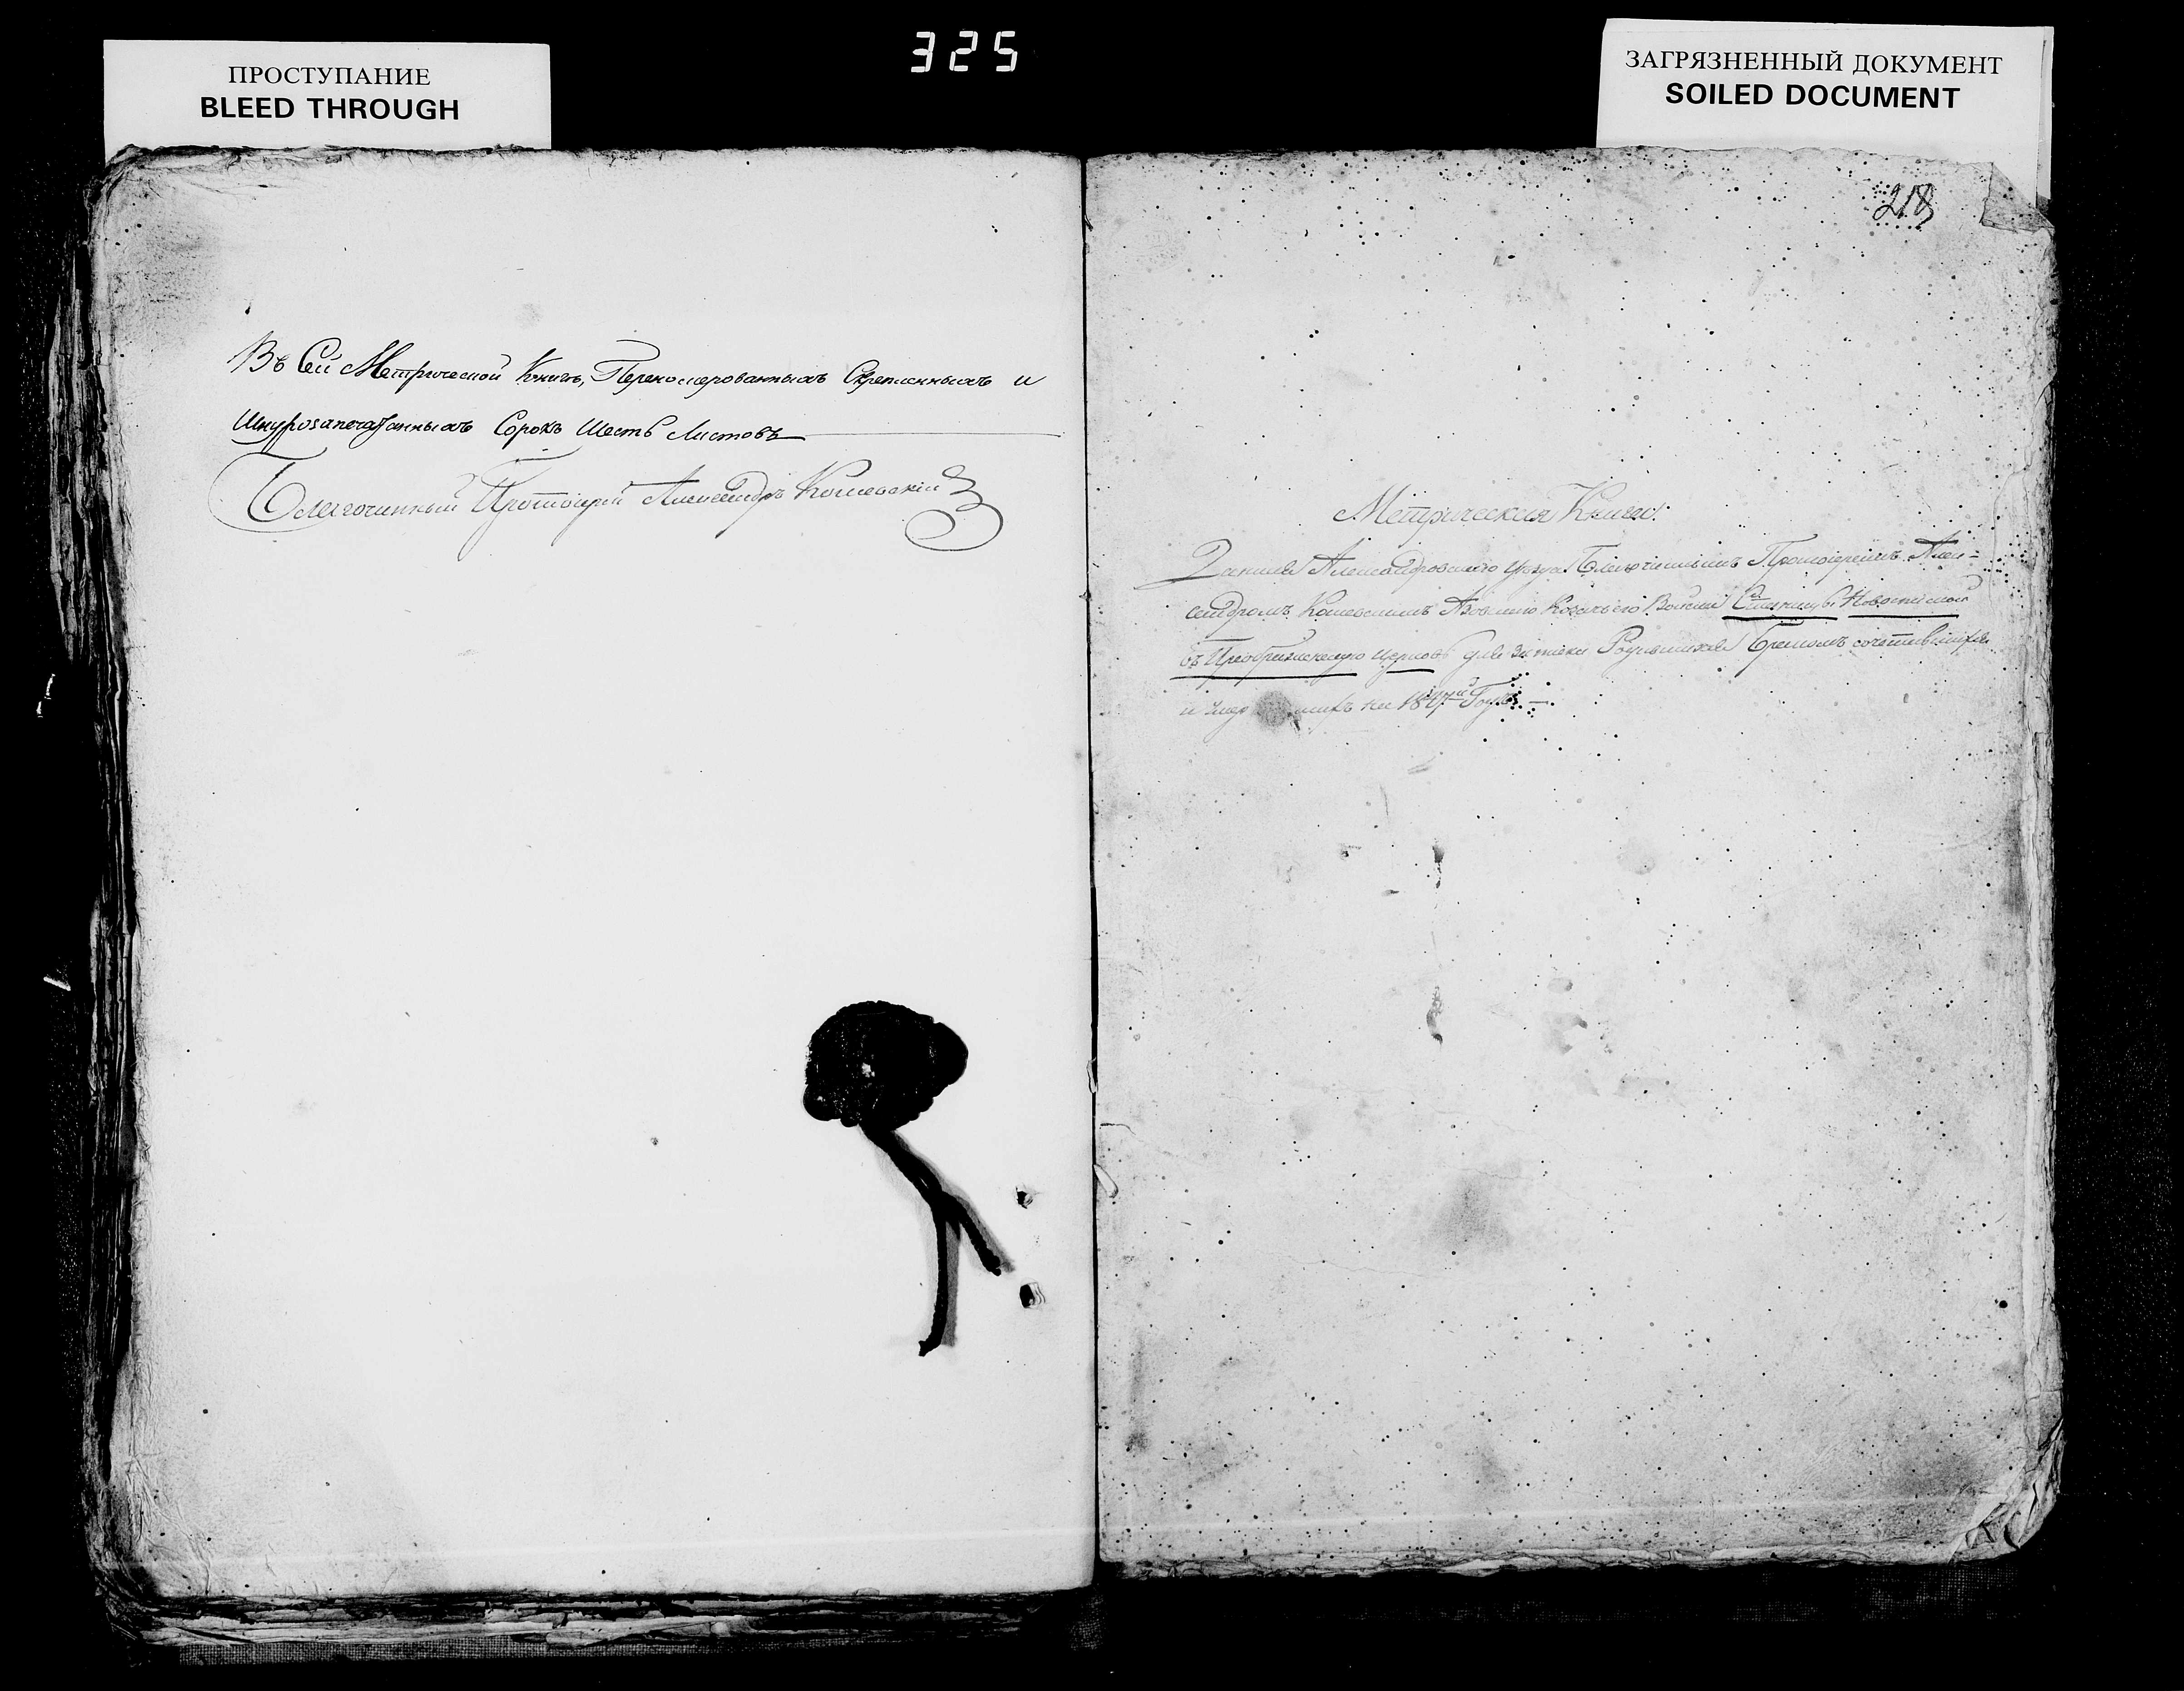 325
ПРОСТУПАНИЕ
BLEED THROUGH
ЗАГРЯЗНЕННЫЙ ДОКУМЕНТ
SOILED DOCUMENT
Въ Сей Метрической Книгѣ, Перекомерованныхъ Скрепленныхъ и
Шнурозапечатанныхъ Сорокъ Шесть Листовъ
Благочинный Протоіерей Александръ Кошевскій
218
Метрическая Книга
Данная Александровскаго уѣзда Благочиннымъ Протоіереемъ Алек-
сандромъ Кошевскимъ Азовскаго Козачьего Войска Станицы Новоспаской
въ Преобраменскую Церковь для записки Родившихся Бракомъ сочетавшихся
и умер шихъ на 1847й Годъ